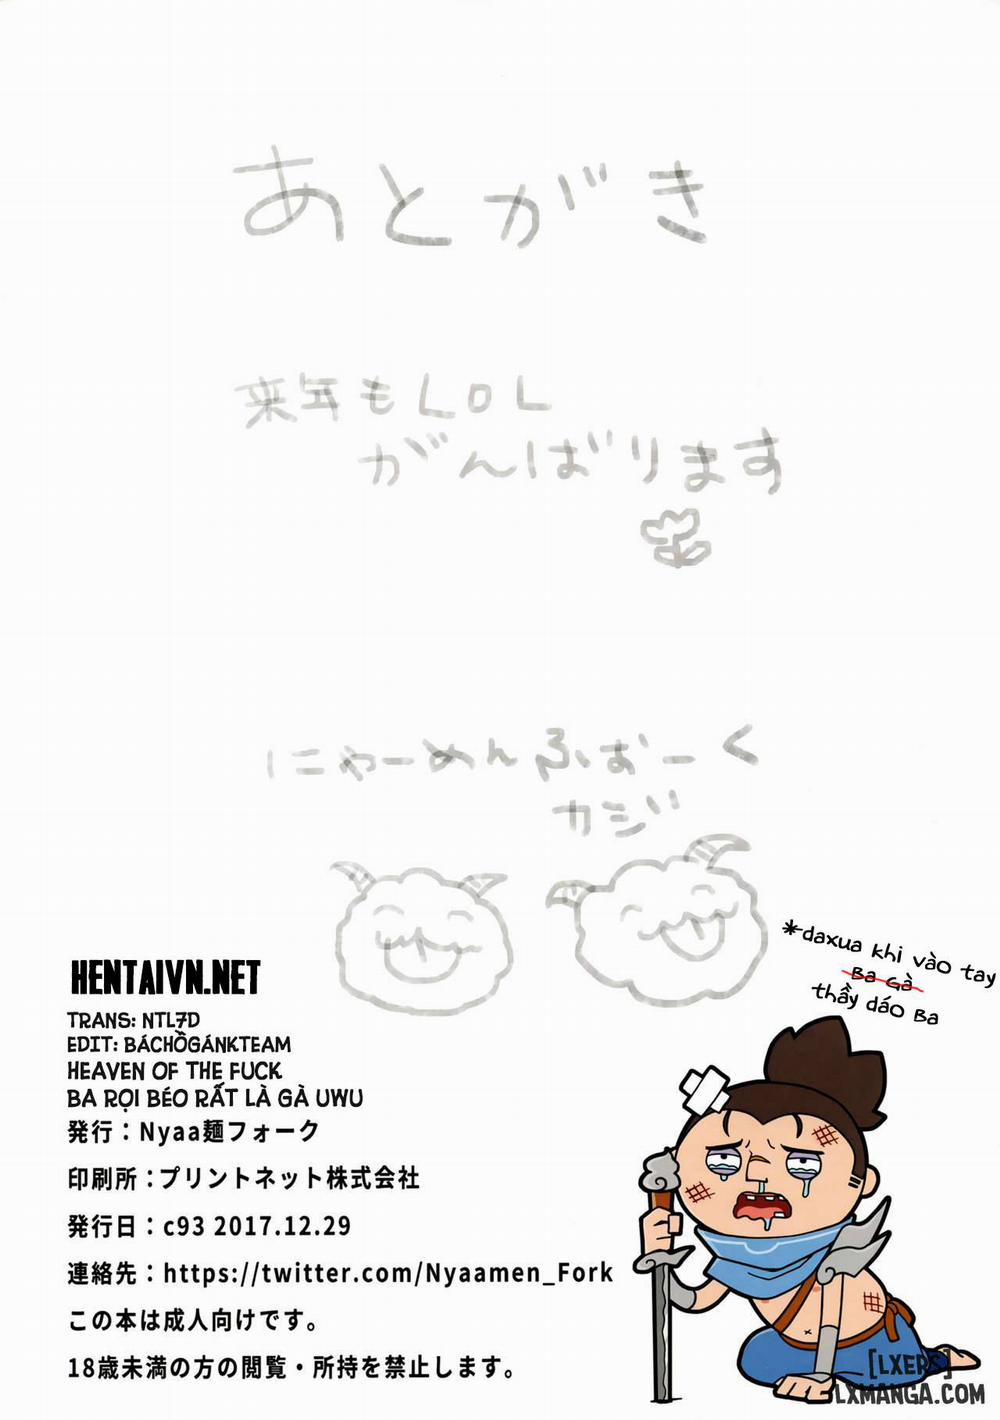 あとがき
来年もLOL
がんばります
にゃーめんふぉーく
カジ
*daxua khi vào tay
Ba Gà
thầy dáo Ba
HENTAIVN.NET
TRANS: NTL7D
EDIT: BÁCHỒGÁNKTEAM
HEAVEN OF THE FUCK
BA RỌI BÉO RẤT LÀ GÀ UWU
発行：Nyaa麺フォーク
印刷所：プリントネット株式会社
発行日：c93 2017.12.29
連絡先：https://twitter.com/Nyaamen_Fork
この本は成人向けです。
18歳未満の方の閲覧・所持を禁止します。
[LXERS]
LXMANGA.COM